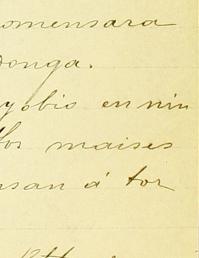 omensara
onga.
y obio en nin
los maises
nsan á tor